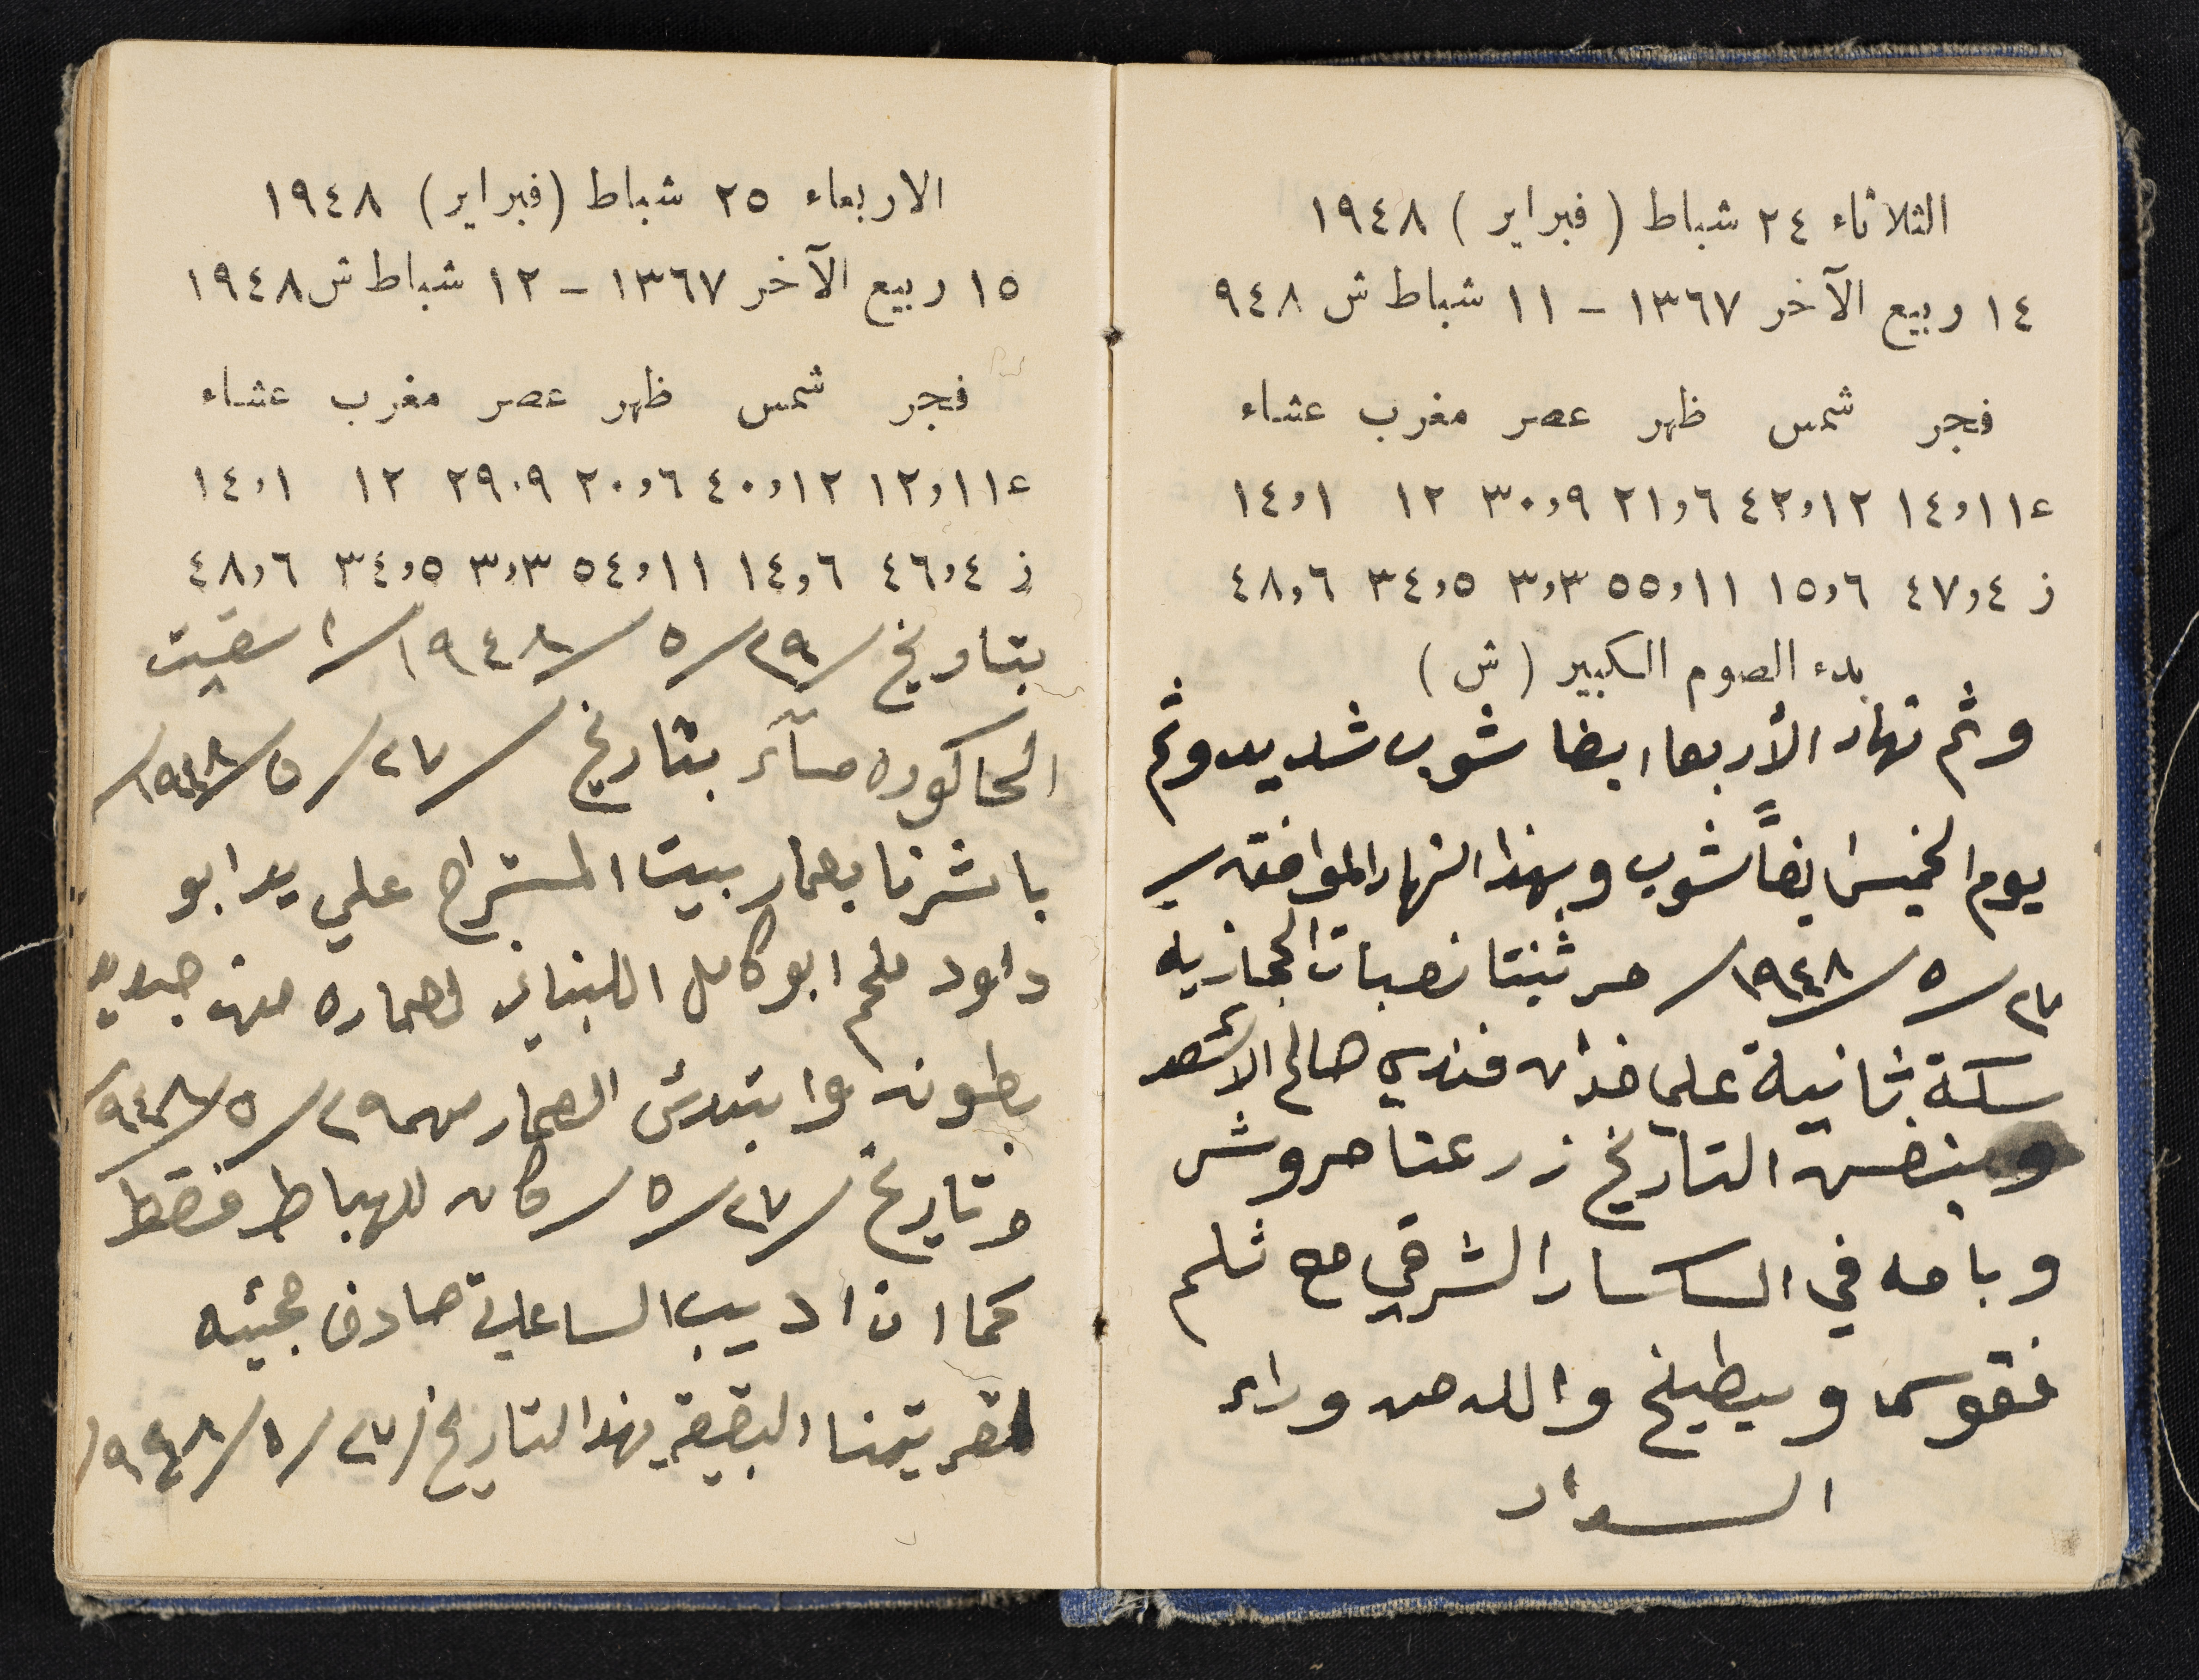 الثلاثاء ٢٤ شباط (فبراير) ١٩٤٨
١٤ ربيع الآخر ١٣٦٧ - ١١ شباط ش ٩٤٨
فجر شمس ظهر عصر مغرب عشاء
ع ١١و١٤ ١٢و٤٢ ٦و٢١ ٩و٣٠ ١٢ ١و١٤
ز ٤و٤٧ ٦و١٥ ١١و٥٥ ٣و٣ ٥و٣٤ ٦و٤٨
بدء الصوم الكبير (ش)
وثم نهار الأربعا ايضا شوب شديد وثم
يوم الخميس ايضاً شوب وبهذا النهار الموافق
٢٧/٥/١٩٤٨/ حرثنتا نصبات الحجازيه
سكة ثانية على فدان فندي صالح الاشقر
وبنفس التاريخ زرعنا حروش
وباميه في الساكسار الشرقي مع ثلم
فقوس وبطيخ والله من وراء
السداد
الاربعاء ٢٥ شباط (فبراير) ١٩٤٨
١٥ ربيع الآخر ١٣٦٧ - ١٢ شباط ش ١٩٤٨
فجر شمس ظهر عصر مغرب عشاء
ع ١١و١٢ ١٢و٤٠ ٦و٢٠ ٩.٢٩ ١٢ ١و١٤
ز ٤و٤٦ ٦و١٤ ١١و٥٤ ٣و٣ ٥و٣٤ ٦و٤٨
بتاريخ /٢٩/٥/١٩٤٨/ سقيت
الحاكوره مسآء بتاريخ /٢٧/٥/١٩٤٨/
باشرنا بعمار بيت المستراح علي يد ابو
داود ملحم ابو كامل اللبناني لعماره من جديد
بطونه وابتدئ العمار من ٢٩/٥/٩٤٨/
وتاريخ /٢٧/٥/ كان للهباط فقط
كما ان اديب الساعاتي صادف مجيئه
لقريتنا البقيعة بهذا التاريخ /٢٧/٥/١٩٤٨/